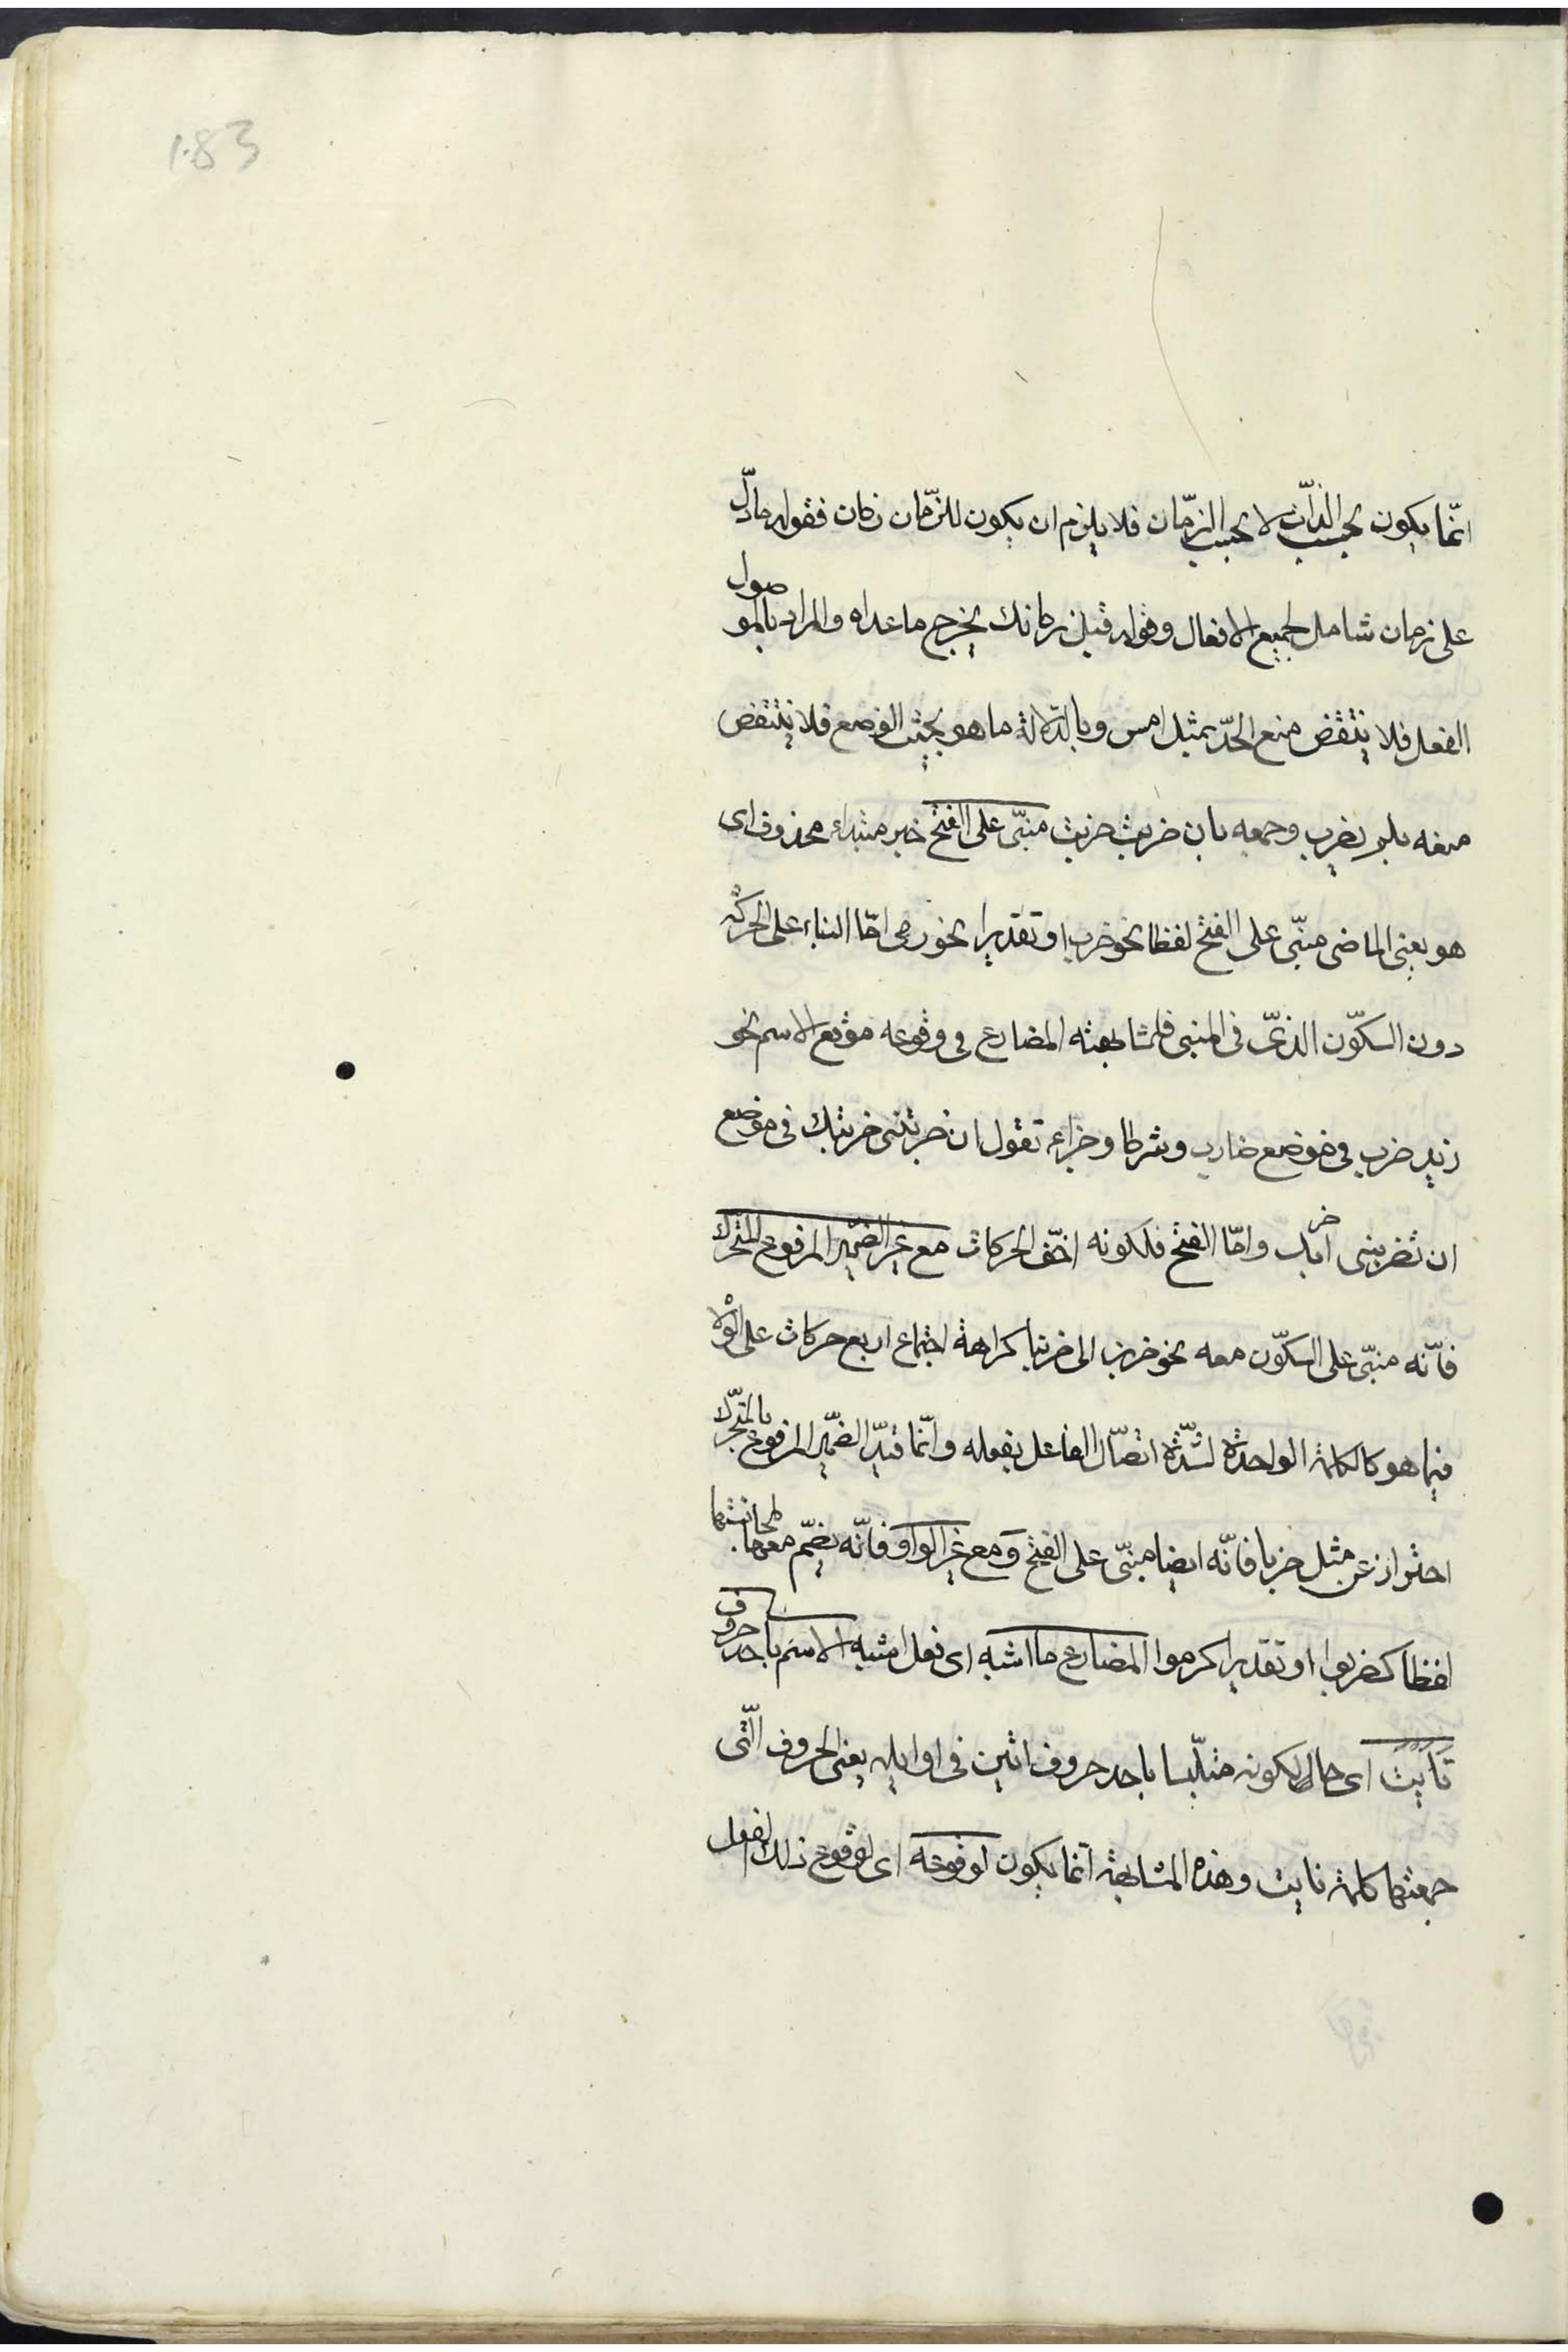 1083
انّما يكون بحسب الذّات لا بحسب الزّمان فلا يلزم ان يكون للزّمان زمان فقوله ما دلّ
على زمان شامل لجميع الافعال وقوله قبل زمانك يخرج ما عداه والمراد بالموصول
الفعل فلا ينتقض منع الحدّ بمثل امس وبالدّلالة ما هو بحيث الوضع فلا ينتقض
منعه بلم يضرب وجمعه بان ضربت ضربت مبنّى على الفتح خبر مبتداء محذوف اى
هو يعنى الماضى مبنّى على الفتح لفظا نحو ضرب او تقديرا نحو رمى امّا البناء على الحركة
دون السكّون الذّى فى المبنى فلمشابهته المضارع فى وقوعه موقع الاسم نحو
زيد ضرب فى موضع ضارب وشرطا وجزاء تقول ان ضربتنى ضربتك فى موضع
ان تضربنى اضربك وامّا الفتح فلكونه اخّف الحركات مع غير الضّمير المرفوع المتحّرك
فانّه مبنّى على السكّون معه نحو ضربن الى ضربنا كراهة اجتماع اربع حركات على الولا
فيما هو كالكلمة الواحدة لشدّة اتصّال الفاعل بفعله وانّما قيّد الضّمير المرفوع بالمتحّرك
احتراز عن مثل ضربا فانّه ايضا مبنّى على الفتح ومع غير الواو فانّه يضّم معها لمجانستها
لفظا كضربوا او تقديرا كرموا المضارع ما اشبه اى فعل اشبه الاسم باحد حروف
نَأَيْتُ اى حال كونه متلّبسا باحد حروف اتين فى اوايله يعنى الحروف الّتى
جمعتها كلمة نايت وهذه المشابهة انّما يكون لوقوعه اى لوقوع ذلك الفعل